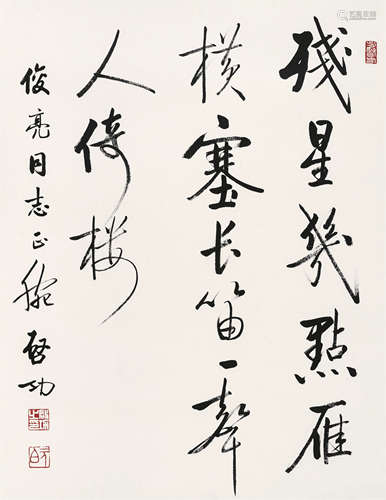 残星幾點雁
横塞长笛一聲
人倚楼
俊亮同志正腕 启功